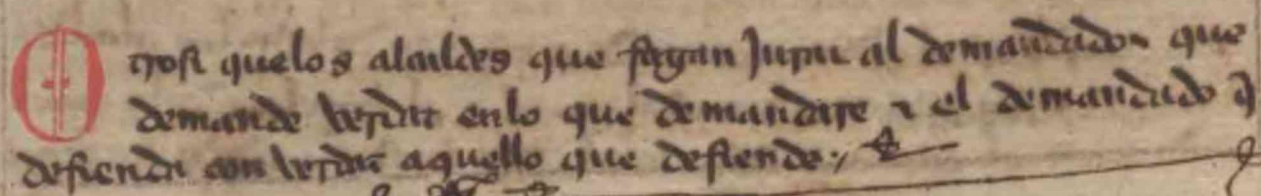 Otrosi quelos alcaldes que fagan jurar al demandador que
demande verdat enlo que demandare ⁊ el demandado q̃
defienda con verdat aquello que defiende